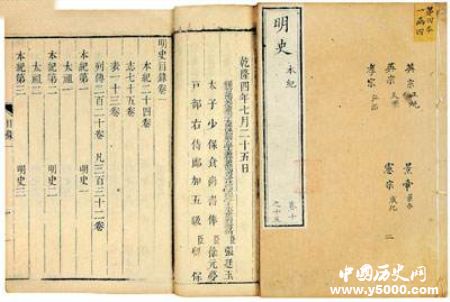 明史
本紀
卷十
之十五
第四本
一函四
英宗正統
景帝景泰
英宗天順
憲宗成化
孝宗弘治
二
乾隆四年七月二十五日
張廷玉
太子少保食尚書俸臣徐元夢
戶部右侍郎加五級臣
保
明史目錄卷一
本紀二十四卷
志七十五卷
表一十三卷
列傳二百二十卷 凡三百三十二卷
本紀第一 明史一
太祖一
本紀第二 明史二
太祖二
本紀第三 明史三
目錄
一
中国历史网
www.y5000.com